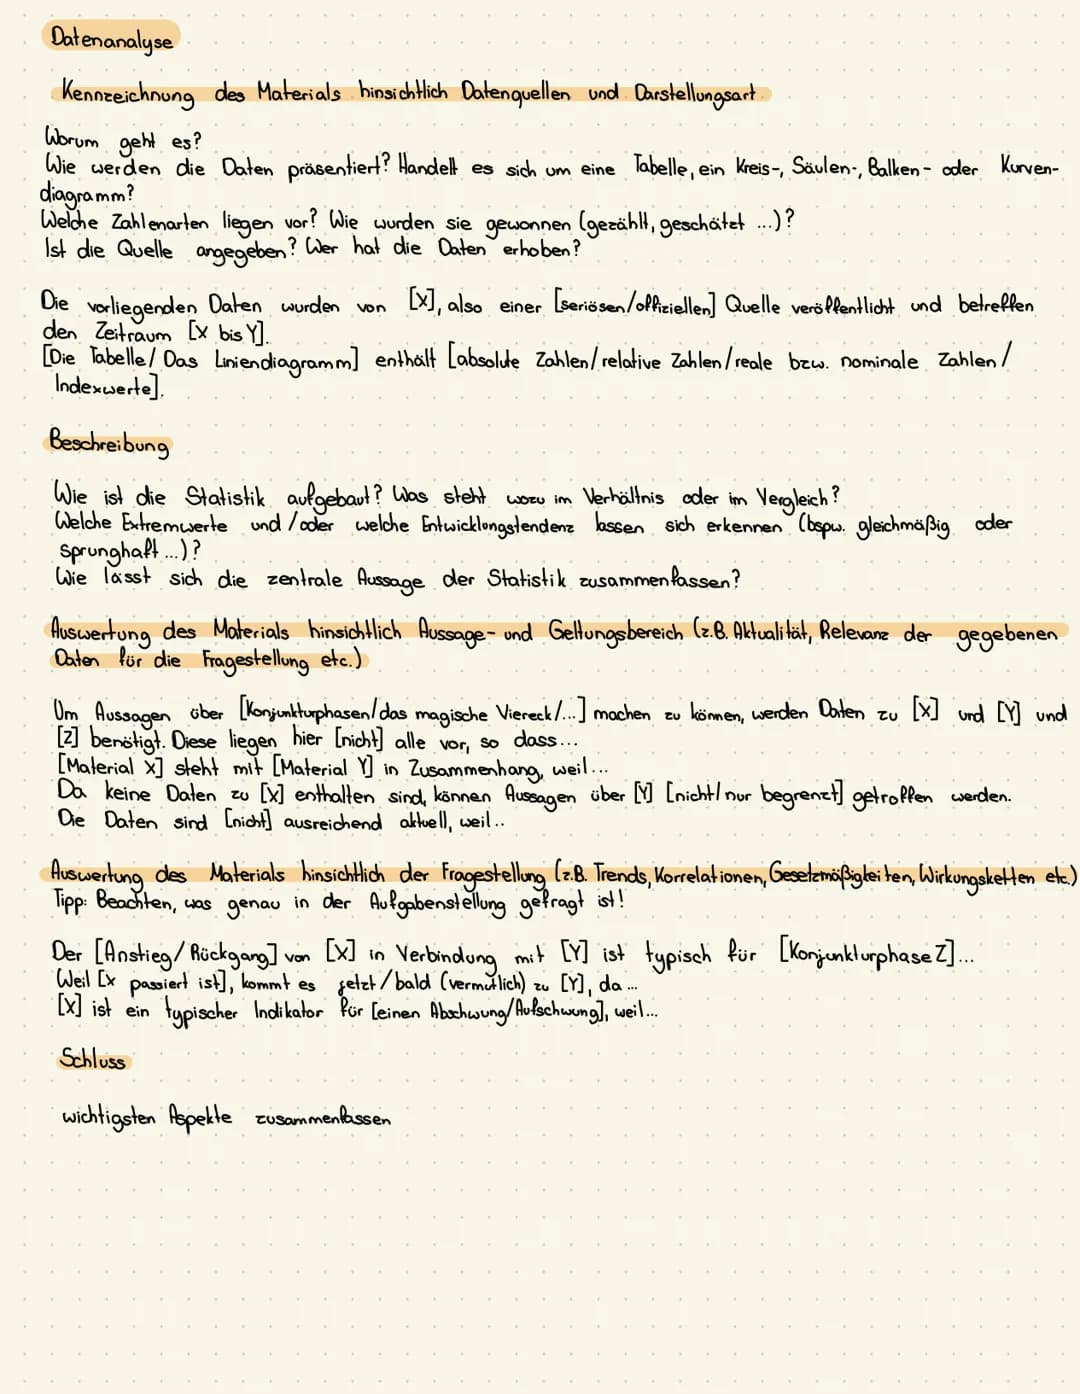 Datenanalyse
Kennzeichnung des Materials hinsichtlich Datenquellen und Darstellungsart
Worum geht es?
Wie werden die Daten präsentiert? Handelt es sich um eine Tabelle, ein Kreis-, Säulen-, Balken- oder Kurven-
diagramm?
Welche Zahlenarten liegen vor? Wie wurden sie gewonnen (gezählt, geschätzt ...)?
Ist die Quelle angegeben? Wer hat die Daten erhoben?
Die vorliegenden Daten wurden von [X], also einer [seriösen/offiziellen] Quelle veröffentlicht und betreffen
den Zeitraum [X bis Y].
[Die Tabelle/ Das Liniendiagramm] enthält [absolute Zahlen/relative Zahlen/reale bzw. nominale Zahlen/
Indexwerte].
Beschreibung
Wie ist die Statistik aufgebaut? Was steht wozu im Verhältnis oder im Vergleich?
Welche Extremwerte und /oder welche Entwicklungstendenz lassen sich erkennen (bspw. gleichmäßig oder
sprunghaft ...)?
Wie lässt sich die zentrale Aussage der Statistik zusammenfassen?
Auswertung des Materials hinsichtlich Aussage- und Geltungsbereich (z.B. Aktualität, Relevanz der gegebenen
Daten für die Fragestellung etc.)
Um Aussagen über [Konjunkturphasen/das magische Viereck/...] machen zu können, werden Daten zu [X] und [Y] und
[Z] benötigt. Diese liegen hier [nicht] alle vor, so dass...
[Material X] steht mit [Material Y] in Zusammenhang, weil...
Da keine Daten zu [X] enthalten sind, können Aussagen über [Y] [nicht/nur begrenzt] getroffen werden.
Die Daten sind [nicht] ausreichend aktuell, weil..
Auswertung des Materials hinsichtlich der Fragestellung (z.B. Trends, Korrelationen, Gesetzmäßigkeiten, Wirkungsketten etc.)
Tipp: Beachten, was genau in der Aufgabenstellung gefragt ist!
Der [Anstieg/Rückgang] von [X] in Verbindung mit [Y] ist typisch für [Konjunkturphase Z]...
Weil [x passiert ist], kommt es jetzt/bald (vermutlich) zu [Y], da ...
[X] ist ein typischer Indikator für [einen Abschwung/Aufschwung], weil...
Schluss
wichtigsten Aspekte zusammenfassen